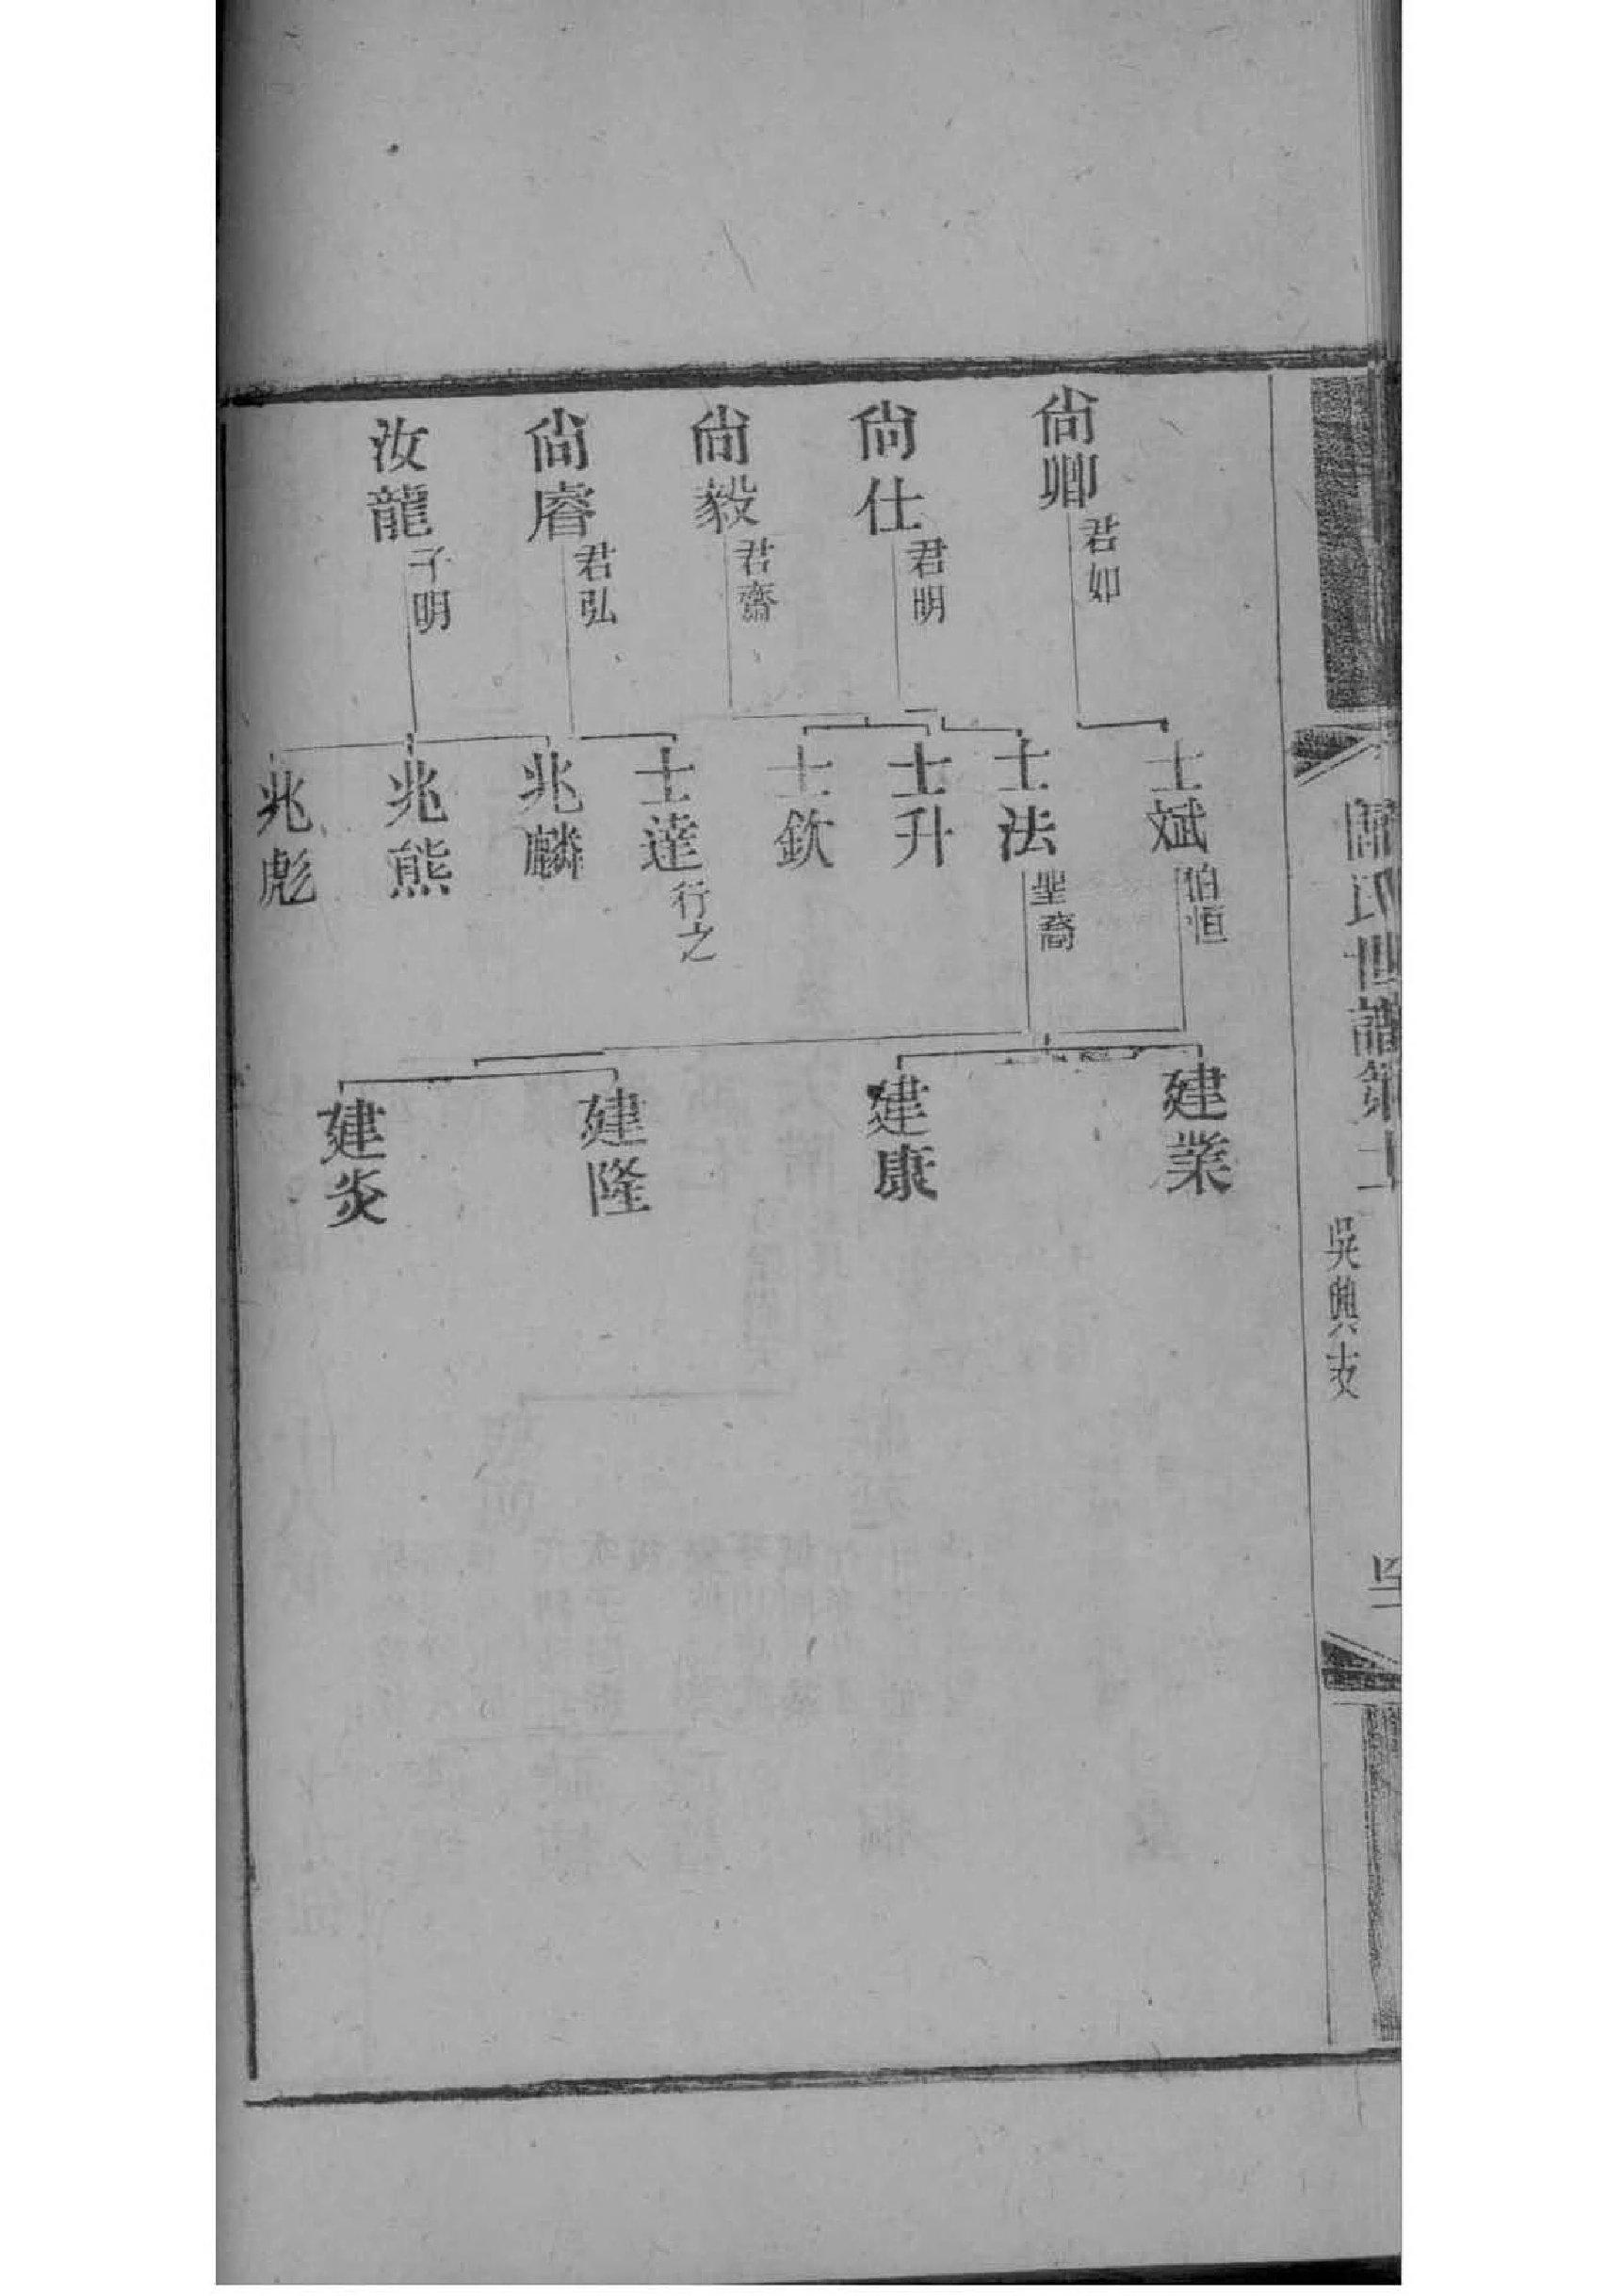 氏世譜
吳興支
尙卿 君如
尙仕 君明
尙毅 君齋
尙睿 君弘
汝龍 子明
士斌 伯恒
士法 聖裔
士升
士欽
士達 行之
兆麟
兆熊
兆彪
建業
建康
建隆
建炎